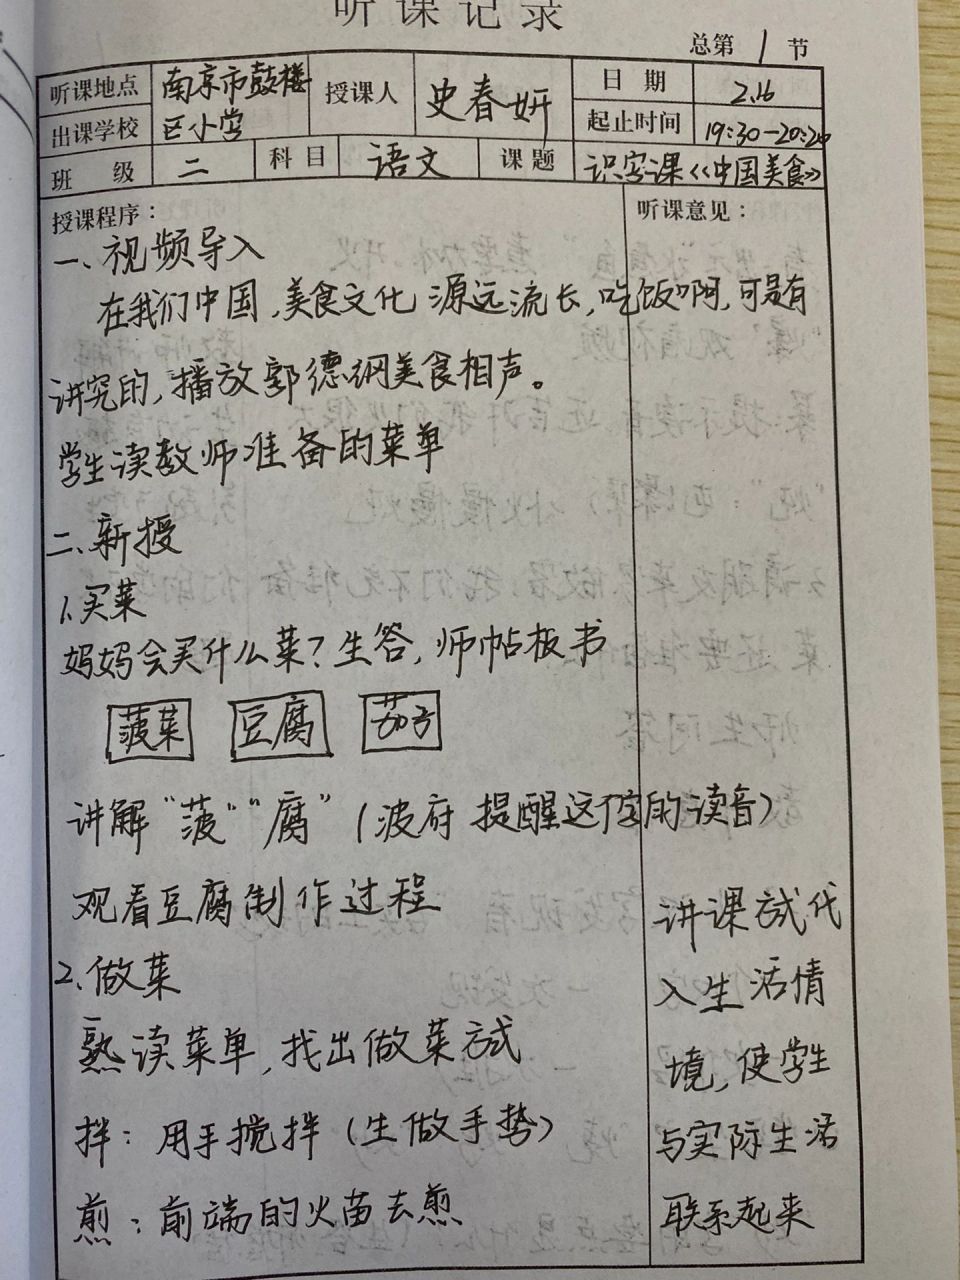 听课记录
总第 1 节
听课地点 南京市鼓楼 授课人 史春妍 日期 2.16
出课学校 区小学 起止时间 19:30-20:20
班级 二 科目 语文 课题 识字课《中国美食》
授课程序：
听课意见：
一、视频导入
在我们中国,美食文化源远流长,吃饭啊,可是有
讲究的,播放郭德纲美食相声。
学生读教师准备的菜单
二、新授
1.买菜
妈妈会买什么菜?生答,师帖板书
菠菜 豆腐 茄子
讲解"菠""腐"(波府 提醒这个字的读音)
观看豆腐制作过程
2.做菜
熟读菜单,找出做菜方式
拌:用手搅拌(生做手势)
煎:前端的火苗去煎
讲课试代
入生活情
境,使学生
与实际生活
联系起来